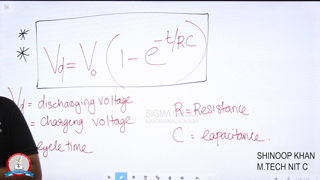 * Vd = V0 (1 - e^-t/RC)
*
Vd = discharging voltage
= charging voltage
cycle time
R = Resistance
C = capacitance.
SIGMA
SHINOOP KHAN
M.TECH NIT C